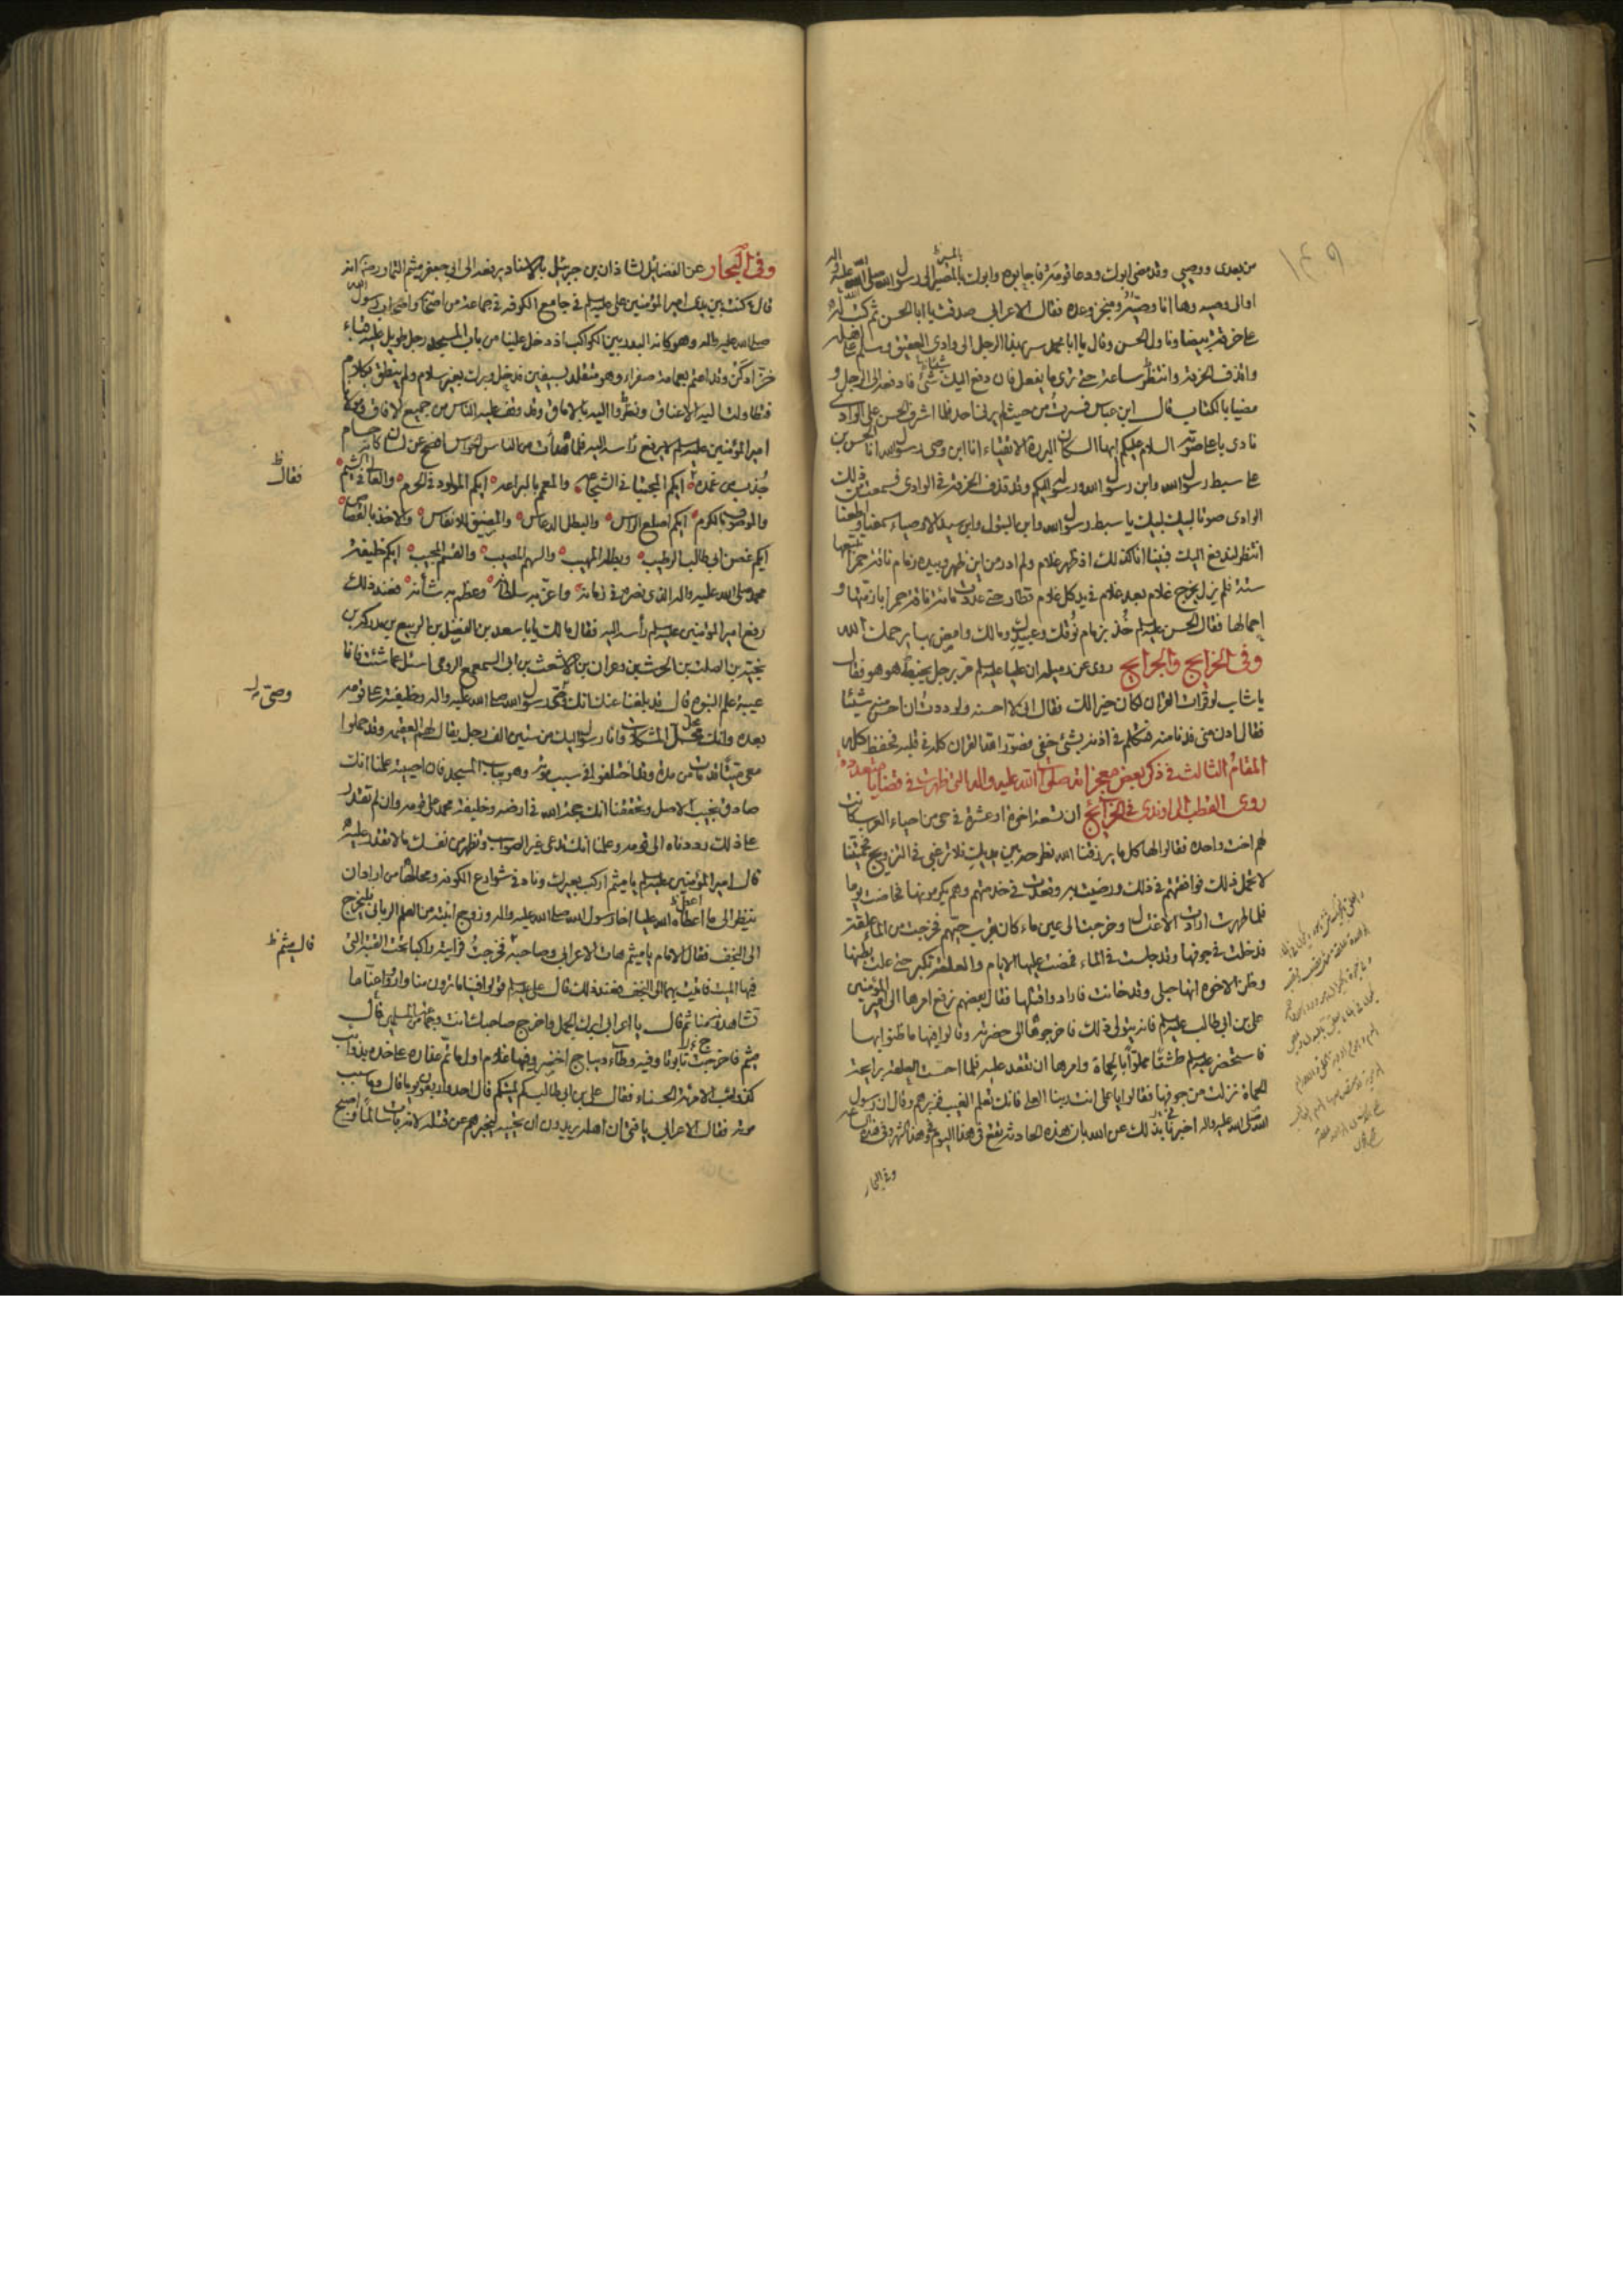 ١٤٩
من بعدى ووصيى وقد مضى ابوك ودعا قومه فاجابوه وابوك بالمصير الى رسول الله صلى الله عليه واله
او الى وصيه وها انا وصيه ومنجز وعده فقال الاعرابى صدقت يا ابا الحسن ثم كتب له
على خرقة بيضا وناول الحسن وقال يا ابا محمد سر بهذا الرجل الى وادى العقيق وسلم على اهله
واقذف الخرقة وانتظر ساعة حتى ترى ما يفعل فان دفع اليك شئ فادفعه الى الرجل و
مضيا بالكتاب قال ابن عباس فسرت من حيث لم يرنى احد فلما اشرف الحسن على الوادى
نادى باعلى صوته السلام عليكم ايها السكان البررة الاتقياء انا ابن وصى رسول الله انا الحسن بن
على سبط رسول الله وابن رسول الله ورسوله اليكم وقد قذف الخرقة فى الوادى فسمعت من ذلك
الوادى صوتا لبيك لبيك يا سبط رسول الله وابن البتول وابن سيد الاوصياء سمعنا واطعنا
انتظر ليدفع اليك فبينا انا كذلك اذ ظهر غلام ولم ادر من اين ظهر وبيده زمام ناقة حمرا تتبعها
ستة فلم يزل يخرج غلام بعد غلام فى يد كل غلام قطار حتى عددت مائة ناقة حمرا بازمتها و
احمالها فقال الحسن عليه السلام خذ بزمام نوقك وعبيدك ومالك وامض بها يرحمك الله
وفى الخرايج والجرايح روى عن رميله ان عليا عليه السلام مر برجل يخبط هو هو فقال
يا شاب لو قرات القران لكان خيرا لك فقال انى لا احسنه ولوددت ان احسن منه شيئا
فقال ادن منى فدنا منه فتكلم فى اذنه بشئ خفى فصور الله القران كله فى قلبه فحفظ كله
المقام الثالث فى ذكر بعض معجزاته صلوات الله عليه واله التى ظهرت فى قضايا متعددة
روى القطب الراوندى فى الخرائج ان تسعة اخوة او عشرة فى حى من احياء العرب كانت
لهم اخت واحدة فقالوا لها كل ما يرزقنا الله نطرحه بين يديك فلا ترغبى فى التزويج فحميتنا
لا تحمل ذلك فوافقتهم فى ذلك ورضيت به وقعدت فى خدمتهم وهم يكرمونها فحاضت يوما
فلما طهرت ارادت الاغتسال وخرجت الى عين ماء كان بقرب حيهم فخرجت من الماء علقة
فدخلت فى جوفها وقد جلست فى الماء فمضت عليها الايام والعلقة تكبر حتى علت بطنها
وظن الاخوة انها حبلى وقد خانت فارادوا قتلها فقال بعضهم نرفع امرها الى امير المؤمنين
على بن ابى طالب عليه السلام فانه يتولى ذلك فاخرجوها الى حضرته وقالوا فيها ما ظنوا بها
فاستحضر عليه السلام طشتا مملوا بالحماة وامرها ان تقعد عليه فلما احست العلقة برايحة
الحماة نزلت من جوفها فقالوا يا على انت ربنا العلى فانك تعلم الغيب فزبرهم وقال ان رسول
الله صلى الله عليه واله اخبرنى بذلك عن الله بان هذه الحادثة تقع فى هذا اليوم فى هذا الشهر وفى هذه الساعة
وفى البحار
وفى البحار عن الفضائل لشاذان بن جبرئيل بالاسناد يرفعه الى ابى جعفر ميثم التمار رحمه انه
قال كنت بين يدى امير المؤمنين على عليه السلام فى جامع الكوفة فى جماعة من اصحابه واصحاب رسول الله
صلى الله عليه واله وهو كانه البدر بين الكواكب اذ دخل علينا من باب المسجد رجل طويل عليه قباء
خز ادكن وقد اعتم بعمامة صفراء وهو متقلد بسيفين فدخل وبرك بغير سلام ولم ينطق بكلام
فتطاولت اليه الاعناق ونظروا اليه بالاماق وقد وقف عليه الناس من جميع الافاق ومولانا
امير المؤمنين عليه السلام لا يرفع راسه اليه فلما هدأت من الناس الحواس افصح عن لسان كانه حسام
جذب من غمده ايكم المجتبى فى الشجاعة والمعمم بالبراعة ايكم المولود فى الحرم والعالى فى الشيم
والموصوف بالكرم ايكم اصلع الراس والبطل الدعاس والمضيق للانفاس والاخذ بالقصاص
ايكم غصن ابى طالب الرطيب وبطله المهيب والسهم المصيب والقسم النجيب ايكم خليفة
محمد صلى الله عليه واله الذى نصره فى زمانه واعز به سلطانه وعظم به شأنه فعند ذلك
رفع امير المؤمنين عليه السلام رأسه اليه فقال مالك يا با سعد بن الفضل بن الربيع بن مدركه بن
نجيبة بن الصلت بن الحرث بن وعران بن الاشعث بن ابى السمعمع الرومى اسئل عما شئت فانا
عيبة علم النبوة قال قد بلغنا عنك انك وصى رسول الله صلى الله عليه واله وخليفته على قومه
بعده وانك محل المشكلات وانا رسول اليك من ستين الف رجل يقال لهم العقيمه وقد حملوا
معى ميتا قد مات من مدة وقد اختلفوا فى سبب موته وهو بباب المسجد فان احييته علمنا انك
صادق نجيب الاصل وتحققنا انك حجة الله فى ارضه وخليفة محمد على قومه وان لم تقدر
على ذلك رددناه الى قومه وعلمنا انك تدعى غير الصواب وتظهر من نفسك ما لا تقدر عليه
قال امير المؤمنين عليه السلام يا ميثم اركب بعيرك وناد فى شوارع الكوفة ومحالها من اراد ان
ينظر الى ما اعطاه الله عليا اخا رسول الله صلى الله عليه واله وزوج ابنته من العلم الربانى فليخرج
الى النجف فقال الامام يا ميثم هات الاعرابى وصاحبه فخرجت فرايته راكبا تحت القبة التى
فيها الميت فاتيت بهما الى النجف فعند ذلك قال على عليه السلام قولوا فينا ما ترون منا واروا عنا ما
تشاهدونه منا ثم قال يا اعرابى ابرك الجمل واخرج صاحبك انت وجماعة من المسلمين قال
ميثم فاخرجت تابوتا وفيه وطاء ديباج اخضر وفيها غلام اول ما تم عذاره على خده بذوائب
كذوائب الامرأة الحسناء فقال على بن ابى طالب كم لميتكم قال احد واربعون يوما قال وما سبب
موته فقال الاعرابى يا فتى ان اهله يريدون ان تحييه ليخبرهم من قتله لانه بات سالما واصبح
فقال ظ
وصى
قال ميثم ظ